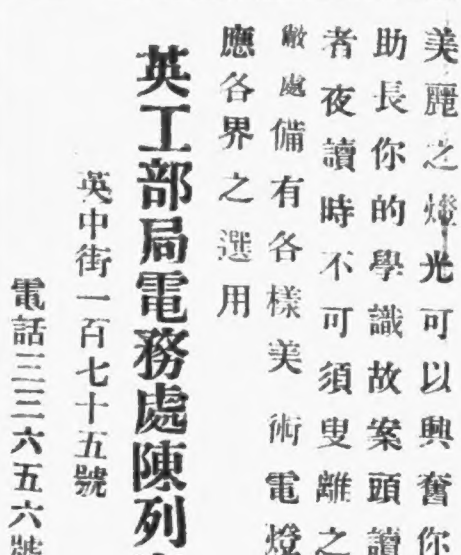 美麗之燈光可以興奮你
助長你的學識故案頭讀
者夜讀時不可須叟離之
敝處備有各樣美術電燈
應各界之選用
英工部局電務處陳列
英中街一百七十五號
電話三三六五六號